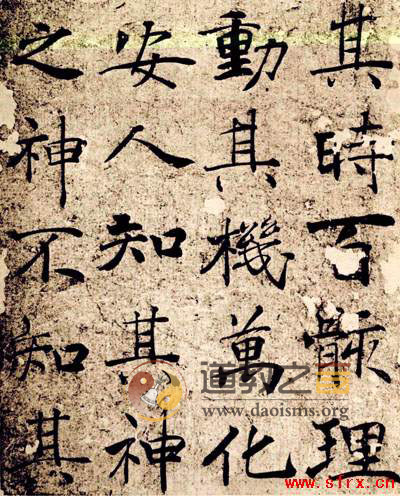 其時百骸理
動其機萬化
安人知其神
之神不知其
道教之音
www.daoisms.org
www.sfrx.cn